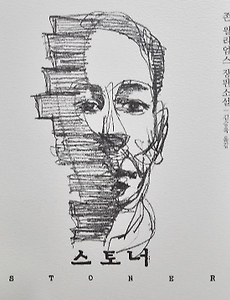 존 윌리엄스 장편소설
김승욱 옮김
스토너
STONER